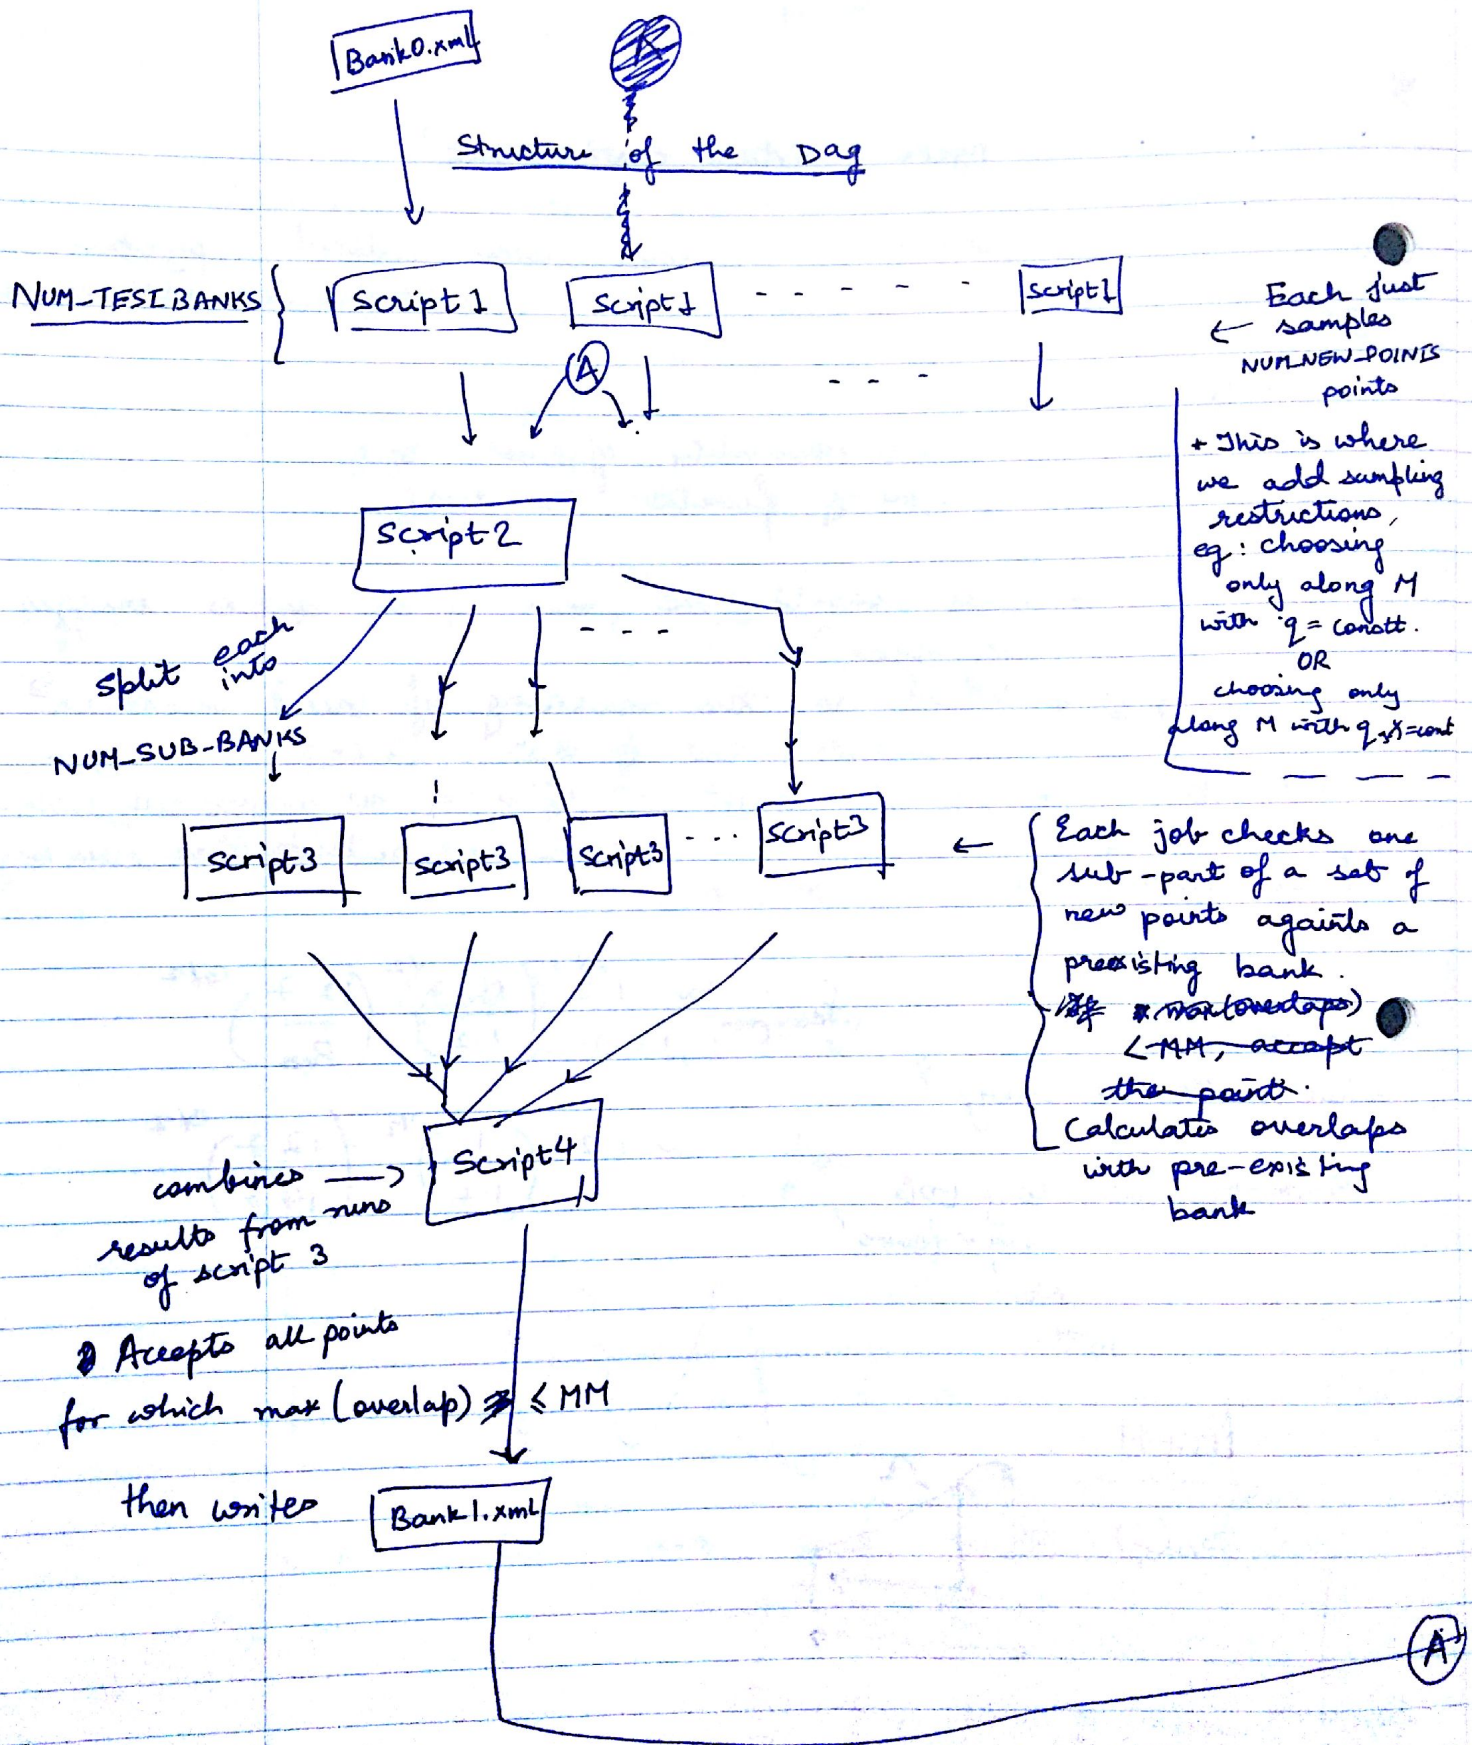 Bank0.xml
Structure of the Dag
NUM_TESTBANKS
Script1
Script1
Script1
Each just
← samples
NUM_NEW_POINTS
points
A
+ This is where
we add sampling
restrictions,
eg: choosing
only along M
with q = constt.
OR
choosing only
along M with q, χ=const
Script2
split each
into
NUM_SUB-BANKS
Script3
Script3
Script3
...
Script3
Each job checks one
sub-part of a set of
new points againts a
preexisting bank.
max(overlaps)
< MM, accept
the point.
Calculates overlaps
with pre-existing
bank
Script4
combines →
results from runs
of script 3
Accepts all points
for which max (overlap) ≤ MM
then writes
Bank1.xml
A